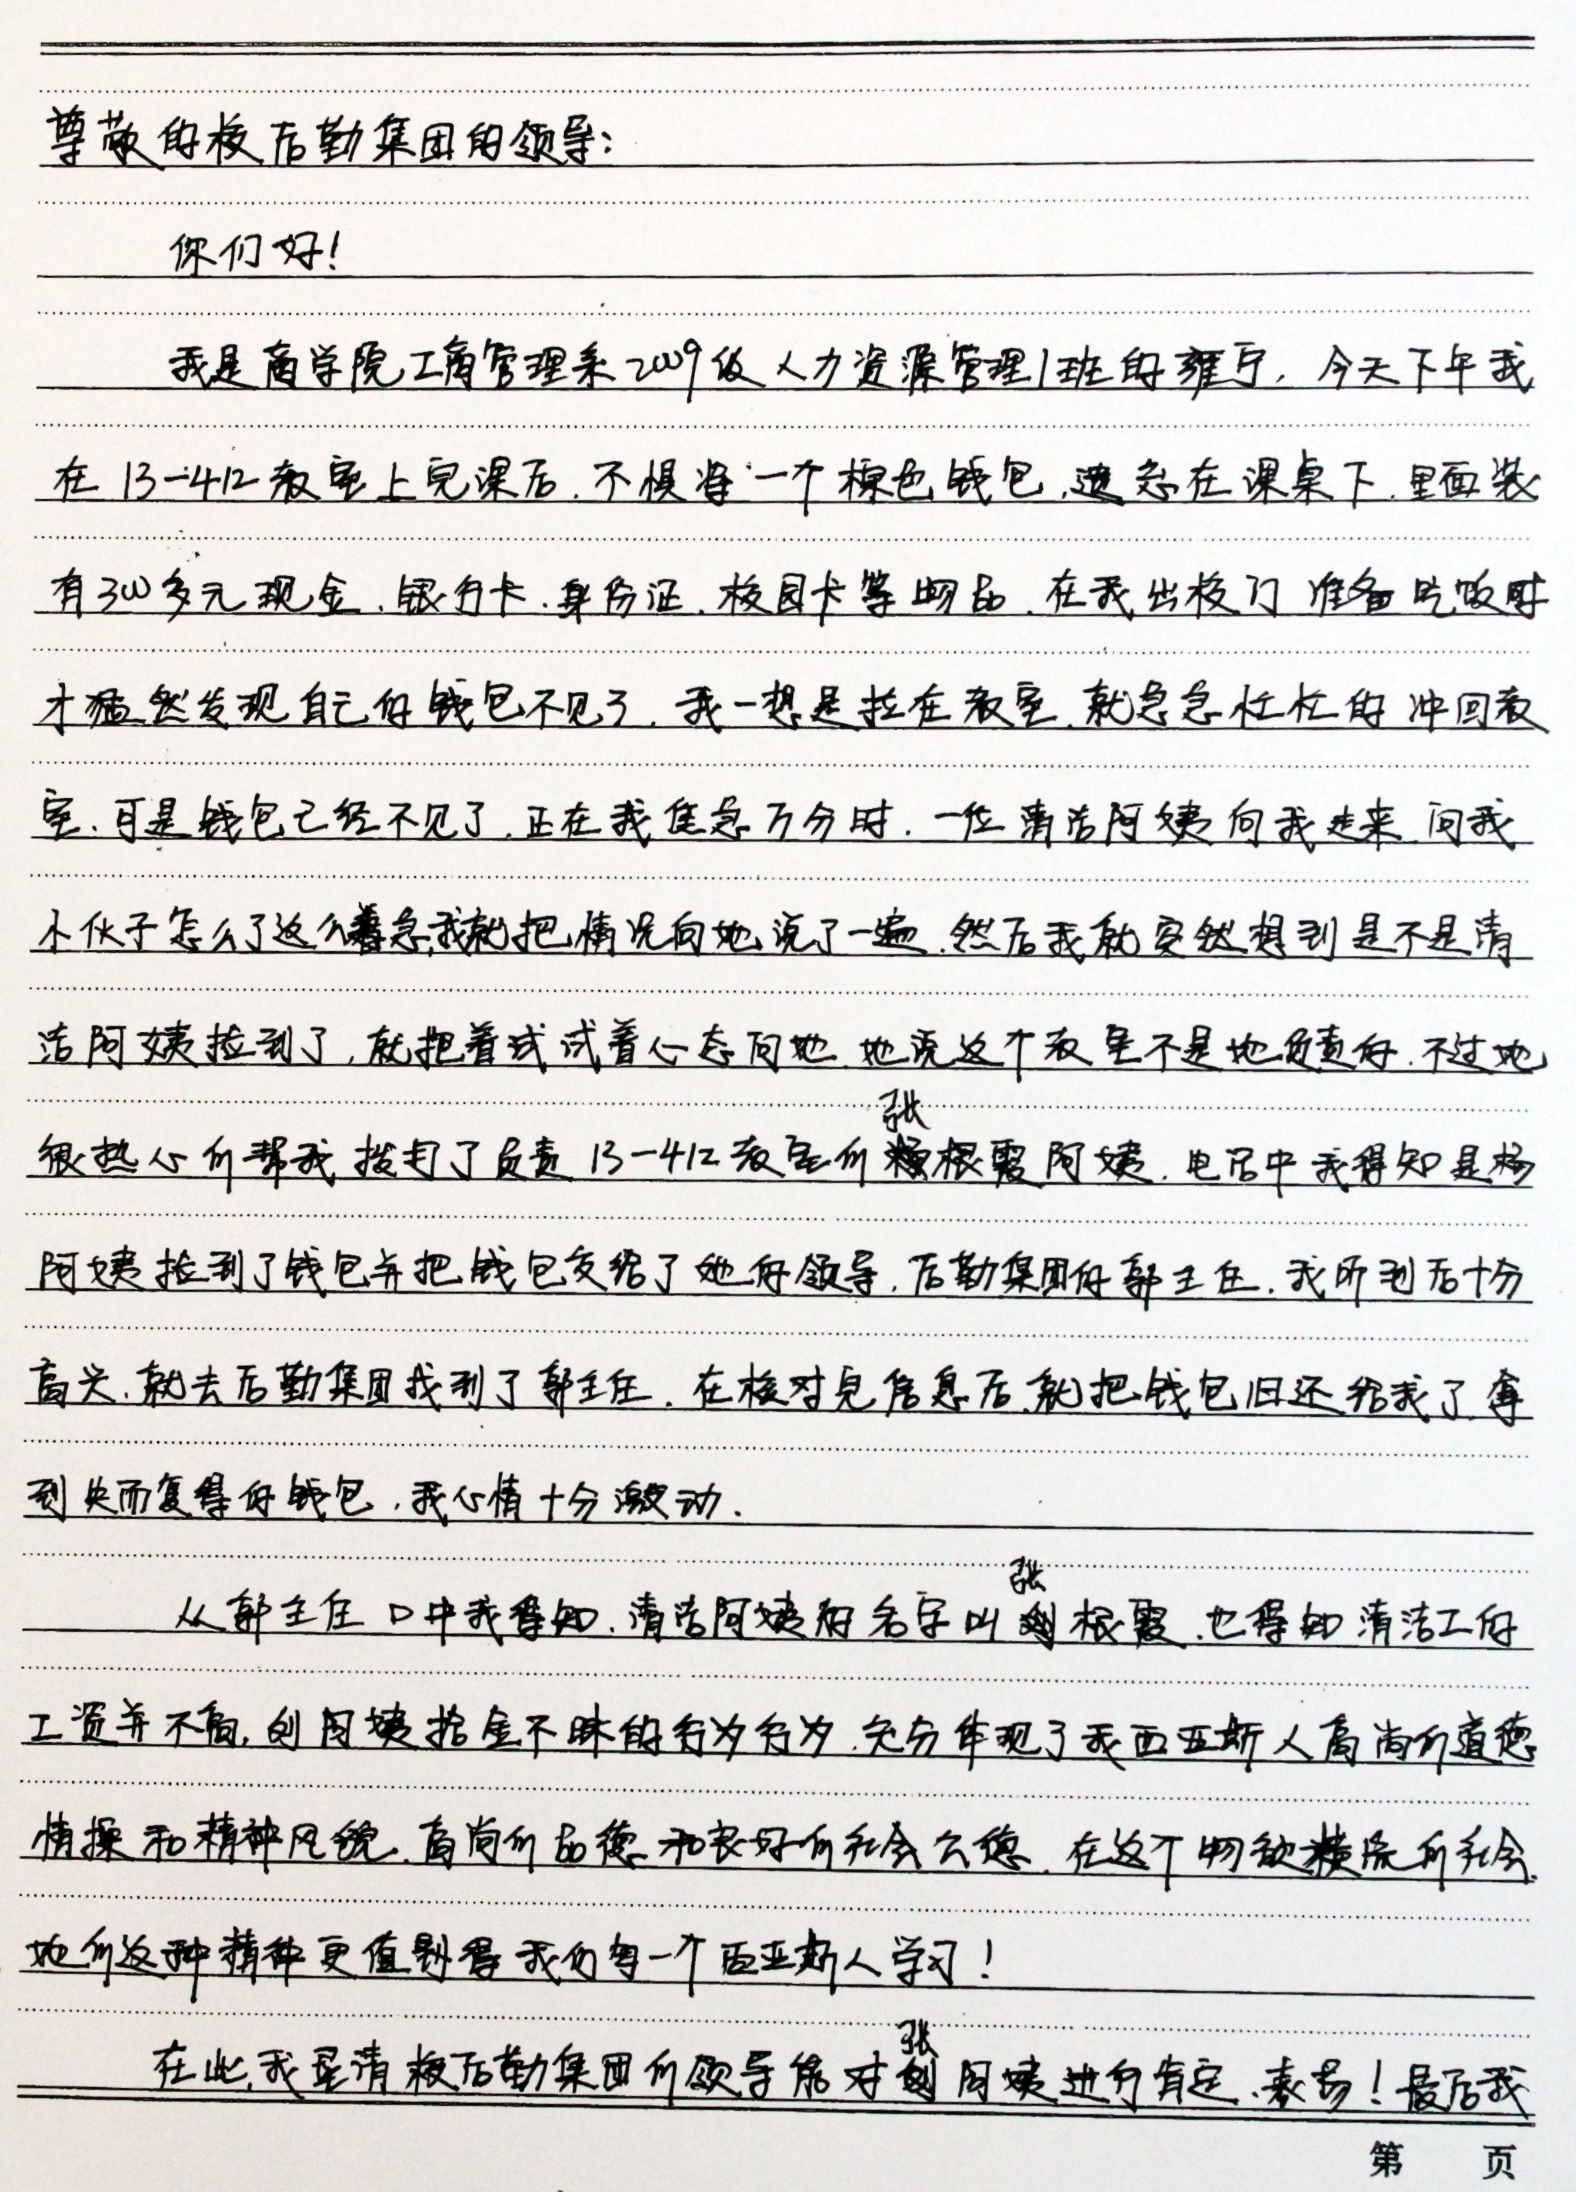 尊敬的校后勤集团的领导：
你们好！
我是商学院工商管理系2009级人力资源管理1班的雍宁，今天下午我
在13-412教室上完课后，不惧将一个棕色钱包，遗忘在课桌下，里面装
有300多元现金、银行卡、身份证、校园卡等物品，在我出校门准备吃饭时
才猛然发现自己的钱包不见了，我一想是拉在教室，就急急忙忙的冲回教
室，可是钱包已经不见了，正在我焦急万分时，一位清洁阿姨向我走来，问我
小伙子怎么了这么着急，我就把情况向她说了一遍，然后我就突然想到是不是清
洁阿姨捡到了，就把着试试着心态问她，她说这个教室不是她负责的，不过她
很热心的帮我拨打了负责13-412教室的张根霞阿姨，电话中我得知是杨
阿姨捡到了钱包并把钱包交给了她的领导，后勤集团的郭主任，我听到后十分
高兴，就去后勤集团找到了郭主任，在核对完信息后，就把钱包归还给我了，拿
到失而复得的钱包，我心情十分激动．
从郭主任口中我得知，清洁阿姨的名字叫张根霞，也得知清洁工的
工资并不高，刘阿姨拾金不昧的行为行为，充分体现了我西亚斯人高尚的道德
情操和精神风貌，高尚的品德和良好的社会公德，在这个物欲横流的社会，
她的这种精神更值得我们每一个西亚斯人学习！
在此，我恳请校后勤集团的领导能对张阿姨进行肯定、表扬！最后我
第 页